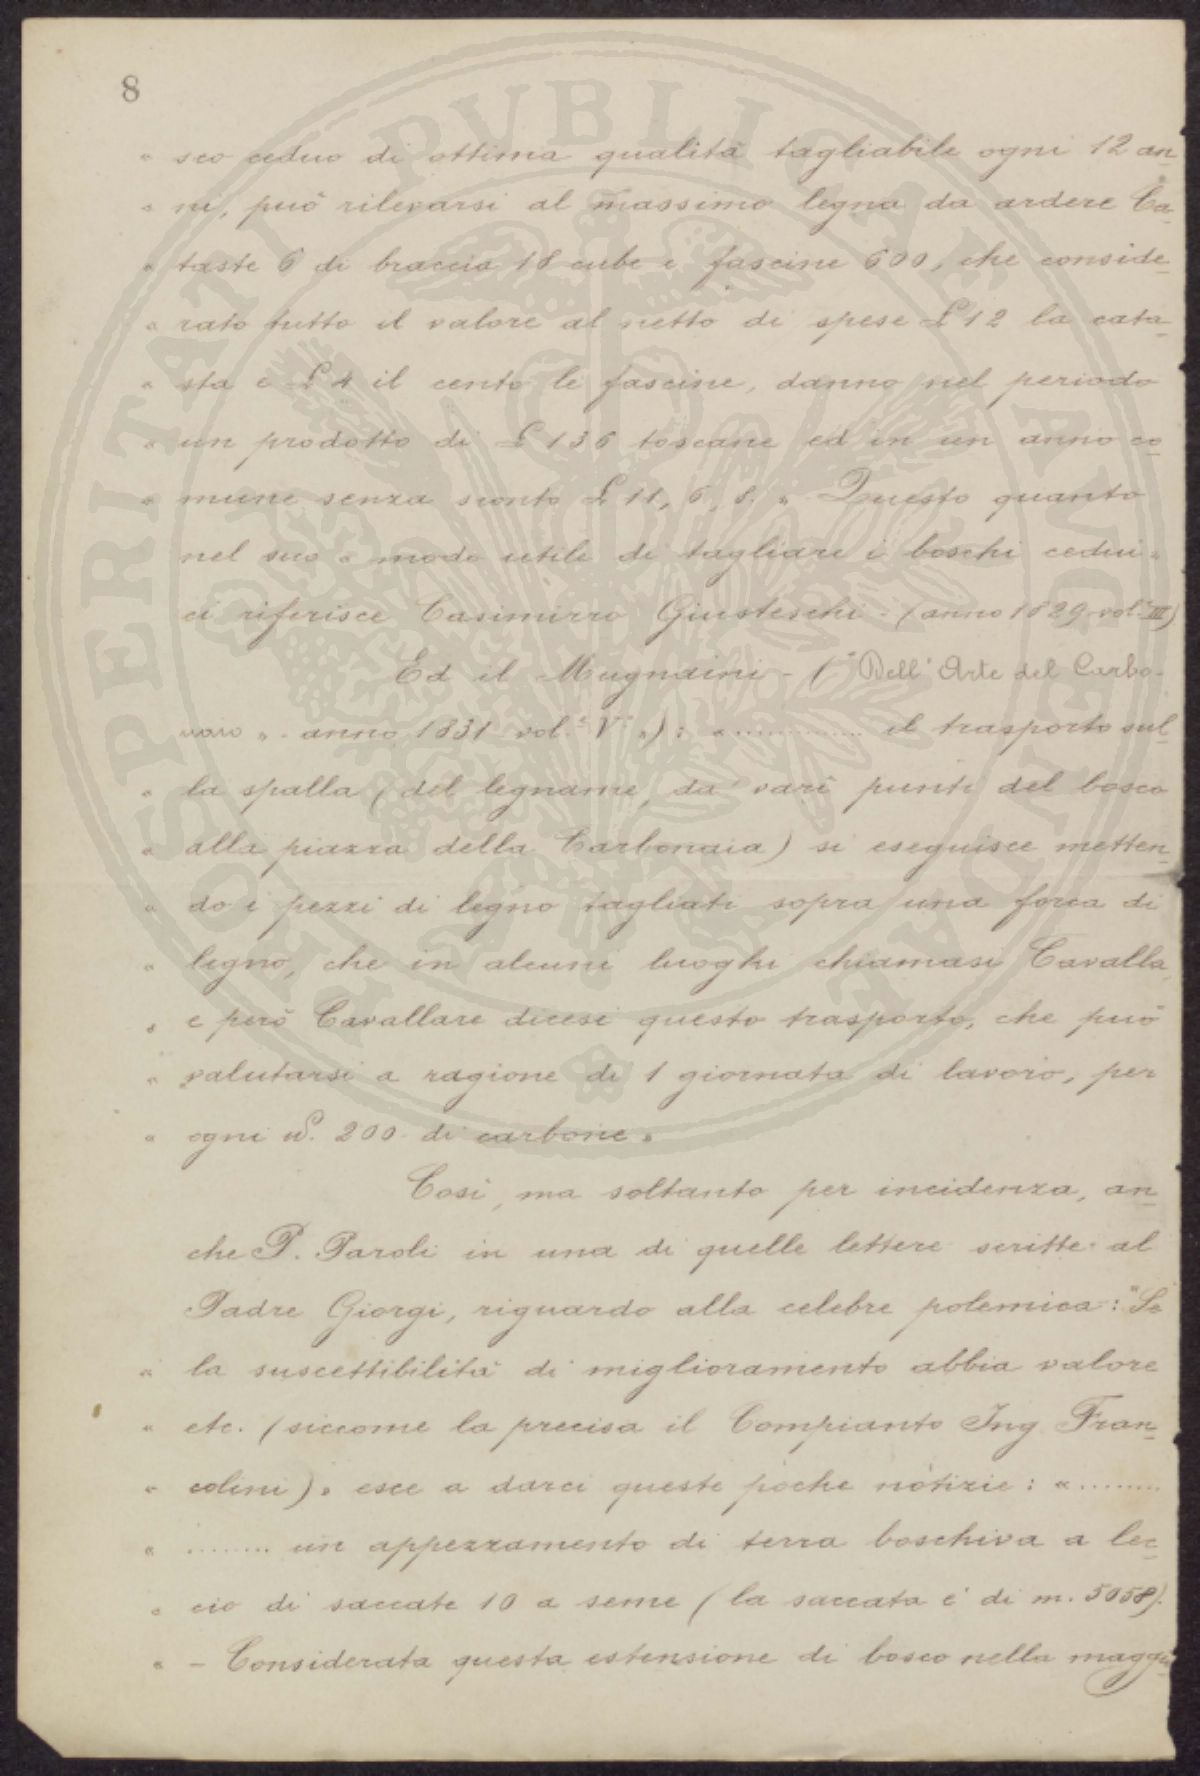 8
« sco ceduo di ottima qualità tagliabile ogni 12 an-
« ni, può rilevarsi al massimo legna da ardere Ca-
« taste 6 di braccia 18 cube e fascine 600, che conside-
« rato tutto il valore al netto di spese £ 12 la cata-
« sta e £ 4 il cento le fascine, danno nel periodo
« un prodotto di £ 136 toscane ed in un anno co-
« mune senza sconto £ 11, 6, 8. » Questo quanto
nel suo « modo utile di tagliare i boschi cedui »
ci riferisce Casimirro Giusteschi - (anno 1829 vol. III)
Ed il Mugnaini - (" Dell' Arte del Carbo-
naio » - anno 1831 vol. V° ») : « ............ il trasporto sul-
« la spalla (del legname, da vari punti del bosco
« alla piazza della Carbonaia) si eseguisce metten-
« do i pezzi di legno tagliati sopra una forca di
« legno, che in alcuni luoghi chiamasi Cavalla,
« e però Cavallare dicesi questo trasporto, che può
« valutarsi a ragione di 1 giornata di lavoro, per
« ogni 200 di carbone »
Così, ma soltanto per incidenza, an-
che P. Paroli in una di quelle lettere scritte al
Padre Giorgi, riguardo alla celebre polemica : "Se
« la suscettibilità di miglioramento abbia valore
« etc. (siccome la precisa il Compianto Ing Fran-
« colini) » esce a darci queste poche notizie : « ........
« ........ un appezzamento di terra boschiva a lec-
« cio di saccate 10 a seme (la saccata è di m. 5058).
« - Considerata questa estensione di bosco nella maggio
PROSPERITATI PVBLICAE AVGENDAE